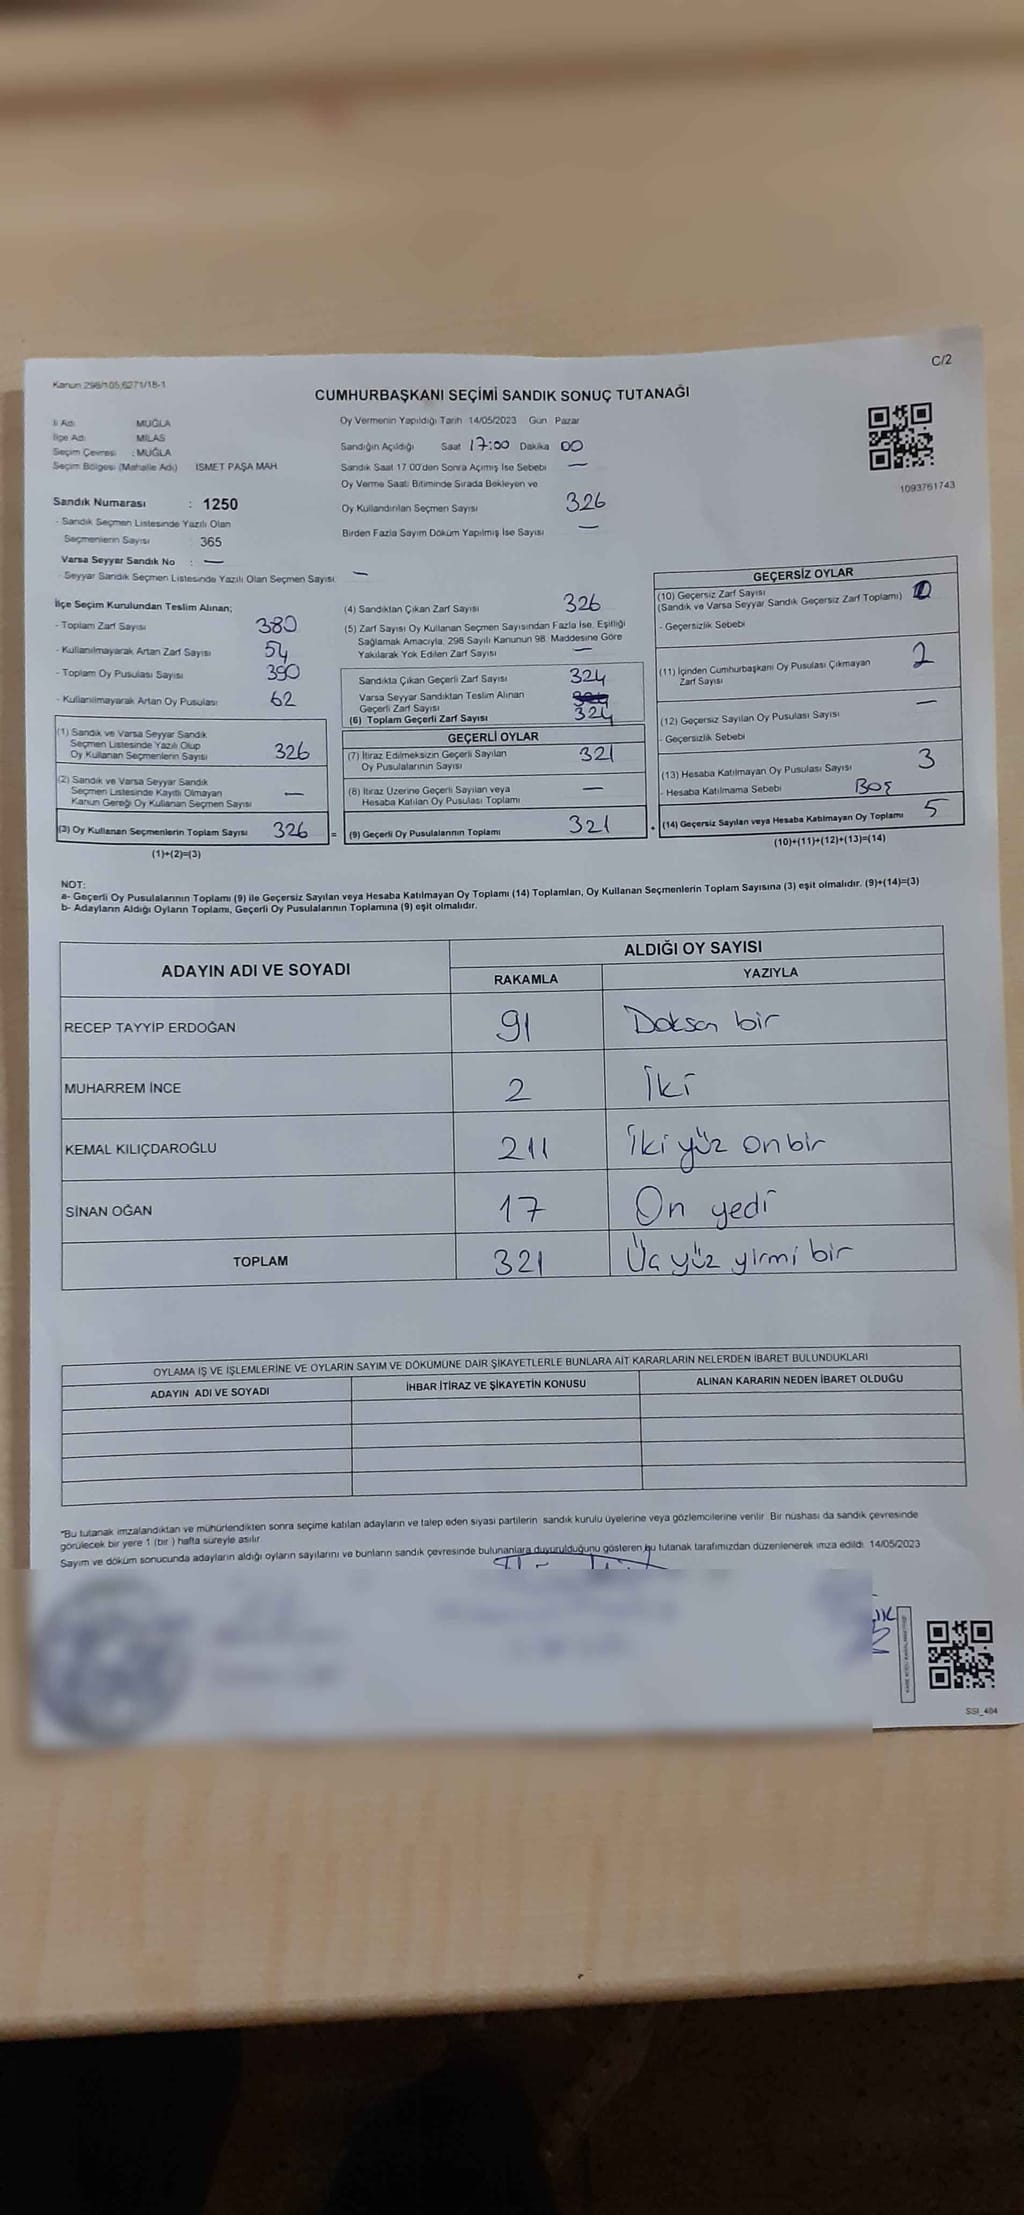 C/2
Kanun 298/105,6271/18-1
CUMHURBAŞKANI SEÇİMİ SANDIK SONUÇ TUTANAĞI
İl Adı MUĞLA
İlçe Adı MİLAS
Seçim Çevresi : MUĞLA
Seçim Bölgesi (Mahalle Adı) İSMET PAŞA MAH
Sandık Numarası : 1250
- Sandık Seçmen Listesinde Yazılı Olan
Seçmenlerin Sayısı 365
Varsa Seyyar Sandık No : —
- Seyyar Sandık Seçmen Listesinde Yazılı Olan Seçmen Sayısı —
Oy Vermenin Yapıldığı Tarih 14/05/2023 Gün Pazar
Sandığın Açıldığı Saat 17:00 Dakika 00
Sandık Saat 17.00'den Sonra Açımış İse Sebebi —
Oy Verme Saati Bitiminde Sırada Bekleyen ve
Oy Kullandırılan Seçmen Sayısı 326
Birden Fazla Sayım Döküm Yapılmış İse Sayısı —
1093761743
İlçe Seçim Kurulundan Teslim Alınan;
- Toplam Zarf Sayısı 380
- Kullanılmayarak Artan Zarf Sayısı 54
- Toplam Oy Pusulası Sayısı 390
- Kullanılmayarak Artan Oy Pusulası 62
(1) Sandık ve Varsa Seyyar Sandık
Seçmen Listesinde Yazılı Olup
Oy Kullanan Seçmenlerin Sayısı 326
(2) Sandık ve Varsa Seyyar Sandık
Seçmen Listesinde Kayıtlı Olmayan
Kanun Gereği Oy Kullanan Seçmen Sayısı —
(3) Oy Kullanan Seçmenlerin Toplam Sayısı 326
(1)+(2)=(3)
(4) Sandıktan Çıkan Zarf Sayısı 326
(5) Zarf Sayısı Oy Kullanan Seçmen Sayısından Fazla İse, Eşitliği
Sağlamak Amacıyla, 298 Sayılı Kanunun 98. Maddesine Göre
Yakılarak Yok Edilen Zarf Sayısı —
Sandıkta Çıkan Geçerli Zarf Sayısı 324
Varsa Seyyar Sandıktan Teslim Alınan
Geçerli Zarf Sayısı
(6) Toplam Geçerli Zarf Sayısı 324
GEÇERLİ OYLAR
(7) İtiraz Edilmeksizin Geçerli Sayılan
Oy Pusulalarının Sayısı 321
(8) İtiraz Üzerine Geçerli Sayılan veya
Hesaba Katılan Oy Pusulası Toplamı —
= (9) Geçerli Oy Pusulalarının Toplamı 321
GEÇERSİZ OYLAR
(10) Geçersiz Zarf Sayısı
(Sandık ve Varsa Seyyar Sandık Geçersiz Zarf Toplamı) 0
- Geçersizlik Sebebi
(11) İçinden Cumhurbaşkanı Oy Pusulası Çıkmayan
Zarf Sayısı 2
(12) Geçersiz Sayılan Oy Pusulası Sayısı —
- Geçersizlik Sebebi
(13) Hesaba Katılmayan Oy Pusulası Sayısı 3
- Hesaba Katılmama Sebebi Boş
+ (14) Geçersiz Sayılan veya Hesaba Katılmayan Oy Toplamı 5
(10)+(11)+(12)+(13)=(14)
NOT:
a- Geçerli Oy Pusulalarının Toplamı (9) ile Geçersiz Sayılan veya Hesaba Katılmayan Oy Toplamı (14) Toplamları, Oy Kullanan Seçmenlerin Toplam Sayısına (3) eşit olmalıdır. (9)+(14)=(3)
b- Adayların Aldığı Oyların Toplamı, Geçerli Oy Pusulalarının Toplamına (9) eşit olmalıdır.
ADAYIN ADI VE SOYADI ALDIĞI OY SAYISI
RAKAMLA YAZIYLA
RECEP TAYYİP ERDOĞAN 91 Doksan bir
MUHARREM İNCE 2 İki
KEMAL KILIÇDAROĞLU 211 İki yüz on bir
SİNAN OĞAN 17 On yedi
TOPLAM 321 Üç yüz yirmi bir
OYLAMA İŞ VE İŞLEMLERİNE VE OYLARIN SAYIM VE DÖKÜMÜNE DAİR ŞİKAYETLERLE BUNLARA AİT KARARLARIN NELERDEN İBARET BULUNDUKLARI
ADAYIN ADI VE SOYADI İHBAR İTİRAZ VE ŞİKAYETİN KONUSU ALINAN KARARIN NEDEN İBARET OLDUĞU
"Bu tutanak imzalandıktan ve mühürlendikten sonra seçime katılan adayların ve talep eden siyasi partilerin sandık kurulu üyelerine veya gözlemcilerine verilir. Bir nüshası da sandık çevresinde
görülecek bir yere 1 (bir ) hafta süreyle asılır.
Sayım ve döküm sonucunda adayların aldığı oyların sayılarını ve bunların sandık çevresinde bulunanlara duyurulduğunu gösteren bu tutanak tarafımızdan düzenlenerek imza edildi. 14/05/2023
SSI_404